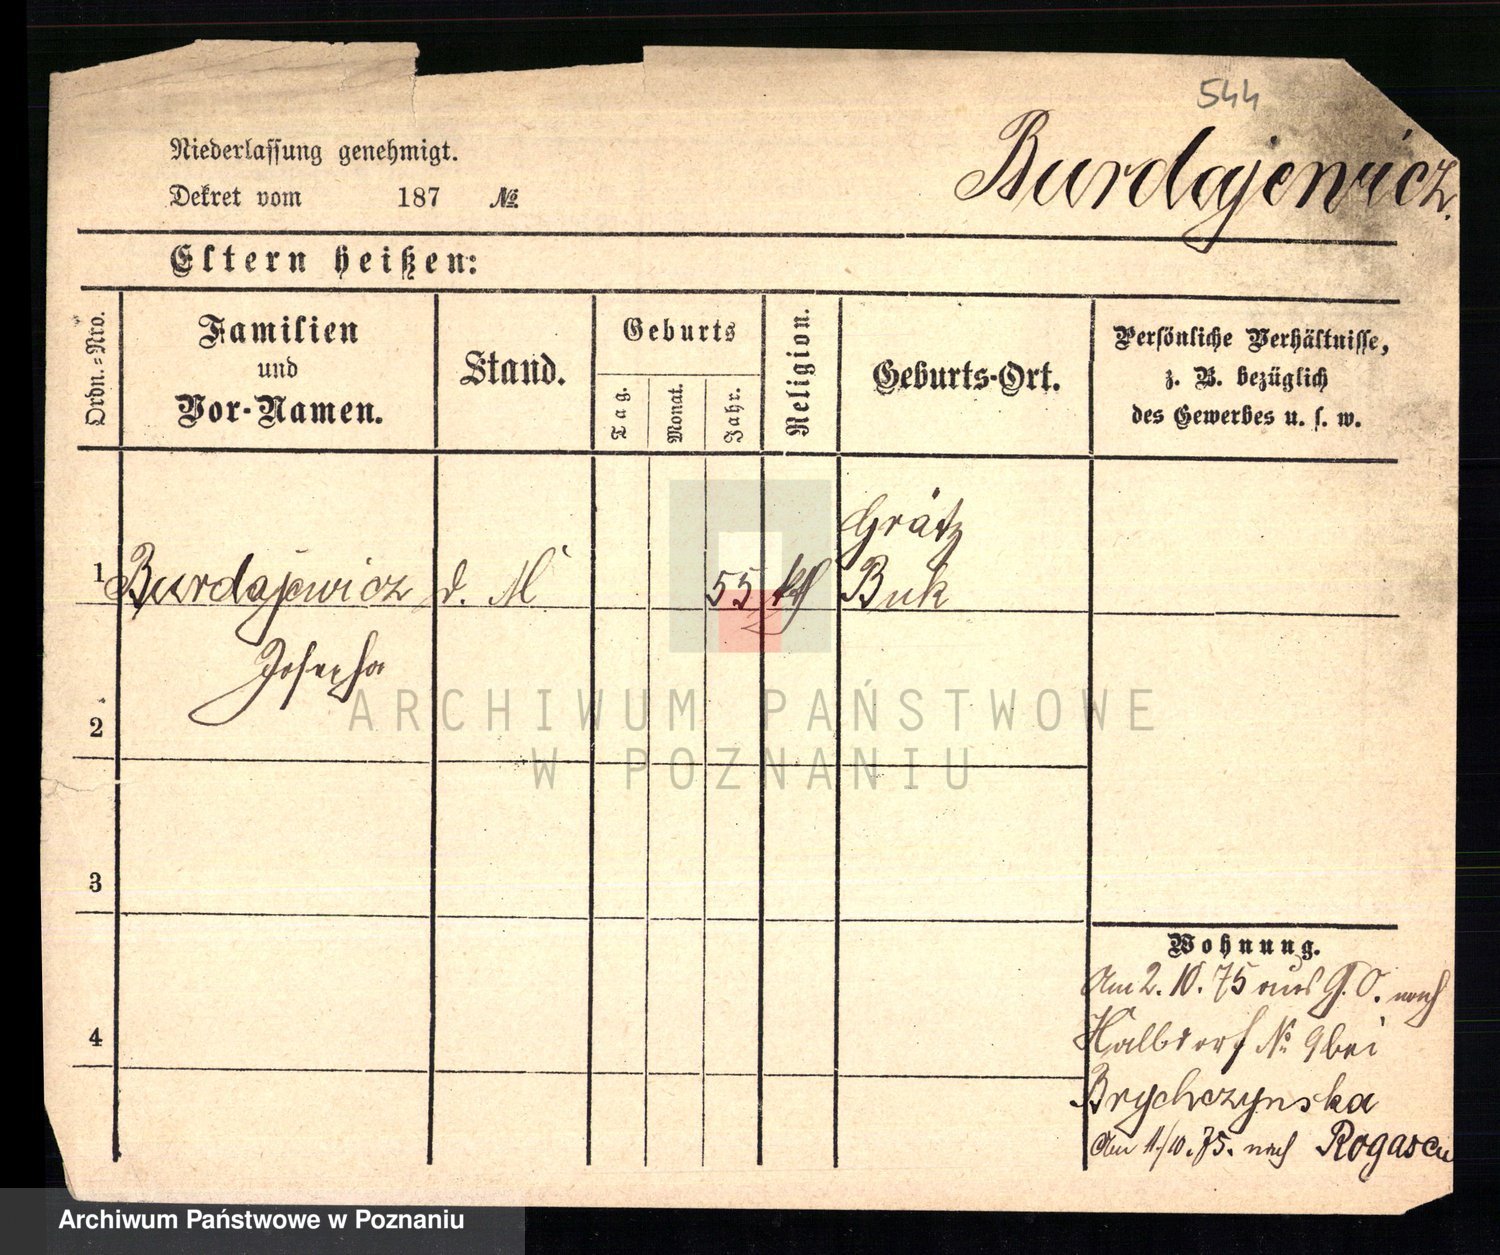 544
Burdajewicz.
Niederlassung genehmigt.
Dekret vom 187 №
Eltern heißen:
Ordn.=Nro.
Familien
und
Vor-Namen.
Stand.
Geburts
Tag.
Monat.
Jahr.
Religion.
Geburts-Ort.
Persönliche Verhältnisse,
z. B. bezüglich
des Gewerbes u. s. w.
Grätz
1 Burdajewicz d. M 55 kth Buk
Josepha
2
3
4
ARCHIWUM PAŃSTWOWE
W POZNANIU
Wohnung.
Am 2.10.75 aus G.O. nach
Halbdorf № 9 bei
Brychczynska
Am 11/10.75. nach Rogasen
Archiwum Państwowe w Poznaniu